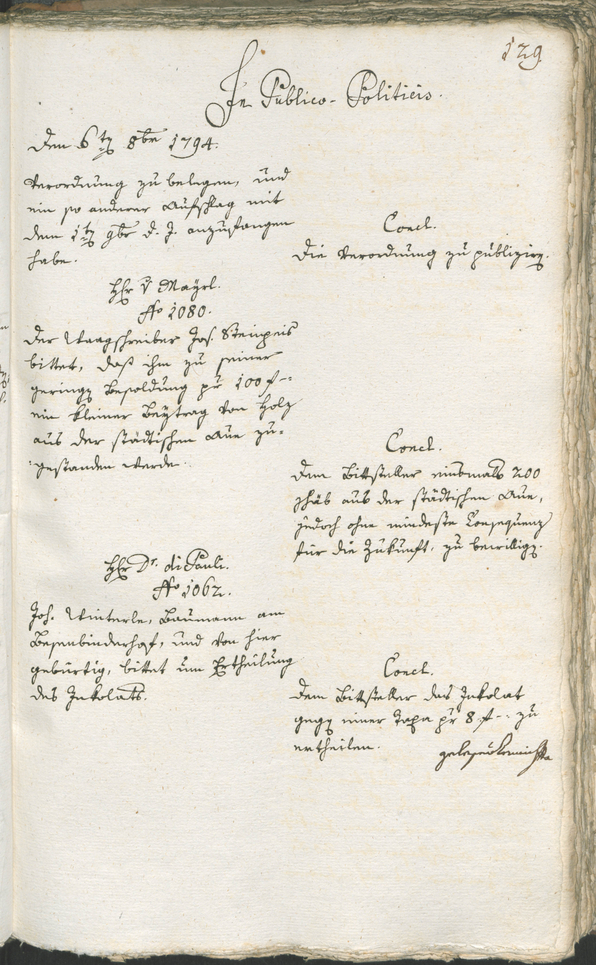 129
In Publico-Politicis.
Den 6ten 8bre 1794.
Verordnung zu belegen, und
ein so anderer Aufschlag mit
dem 1ten 9bre d. J. anzufangen
habe.
Concl.
Die Verordnung zu publiziren.
Hr v Mayrl.
No 1080.
Der Waagschreiber Jos. Steinpeis
bittet, daß ihm zu seiner
geringen Besoldung pr 100 f --
ein kleiner Beytrag von Holz
aus der städtischen Aue zu-
gestanden werde.
Concl.
Dem Bittsteller einsmals 200
aus der städtischen Aue,
jedoch ohne mindeste Consequenz
für die Zukunft, zu bewilligen.
Hr Dr. di Pauli.
No 1062.
Joh. Winterle, Baumann am
Besenbinderhof, und von hier
gebürtig, bittet um Ertheilung
des Inkolats.
Concl.
Dem Bittsteller das Inkolat
gegen einer Taxa pr 8 f -- zu
ertheilen.